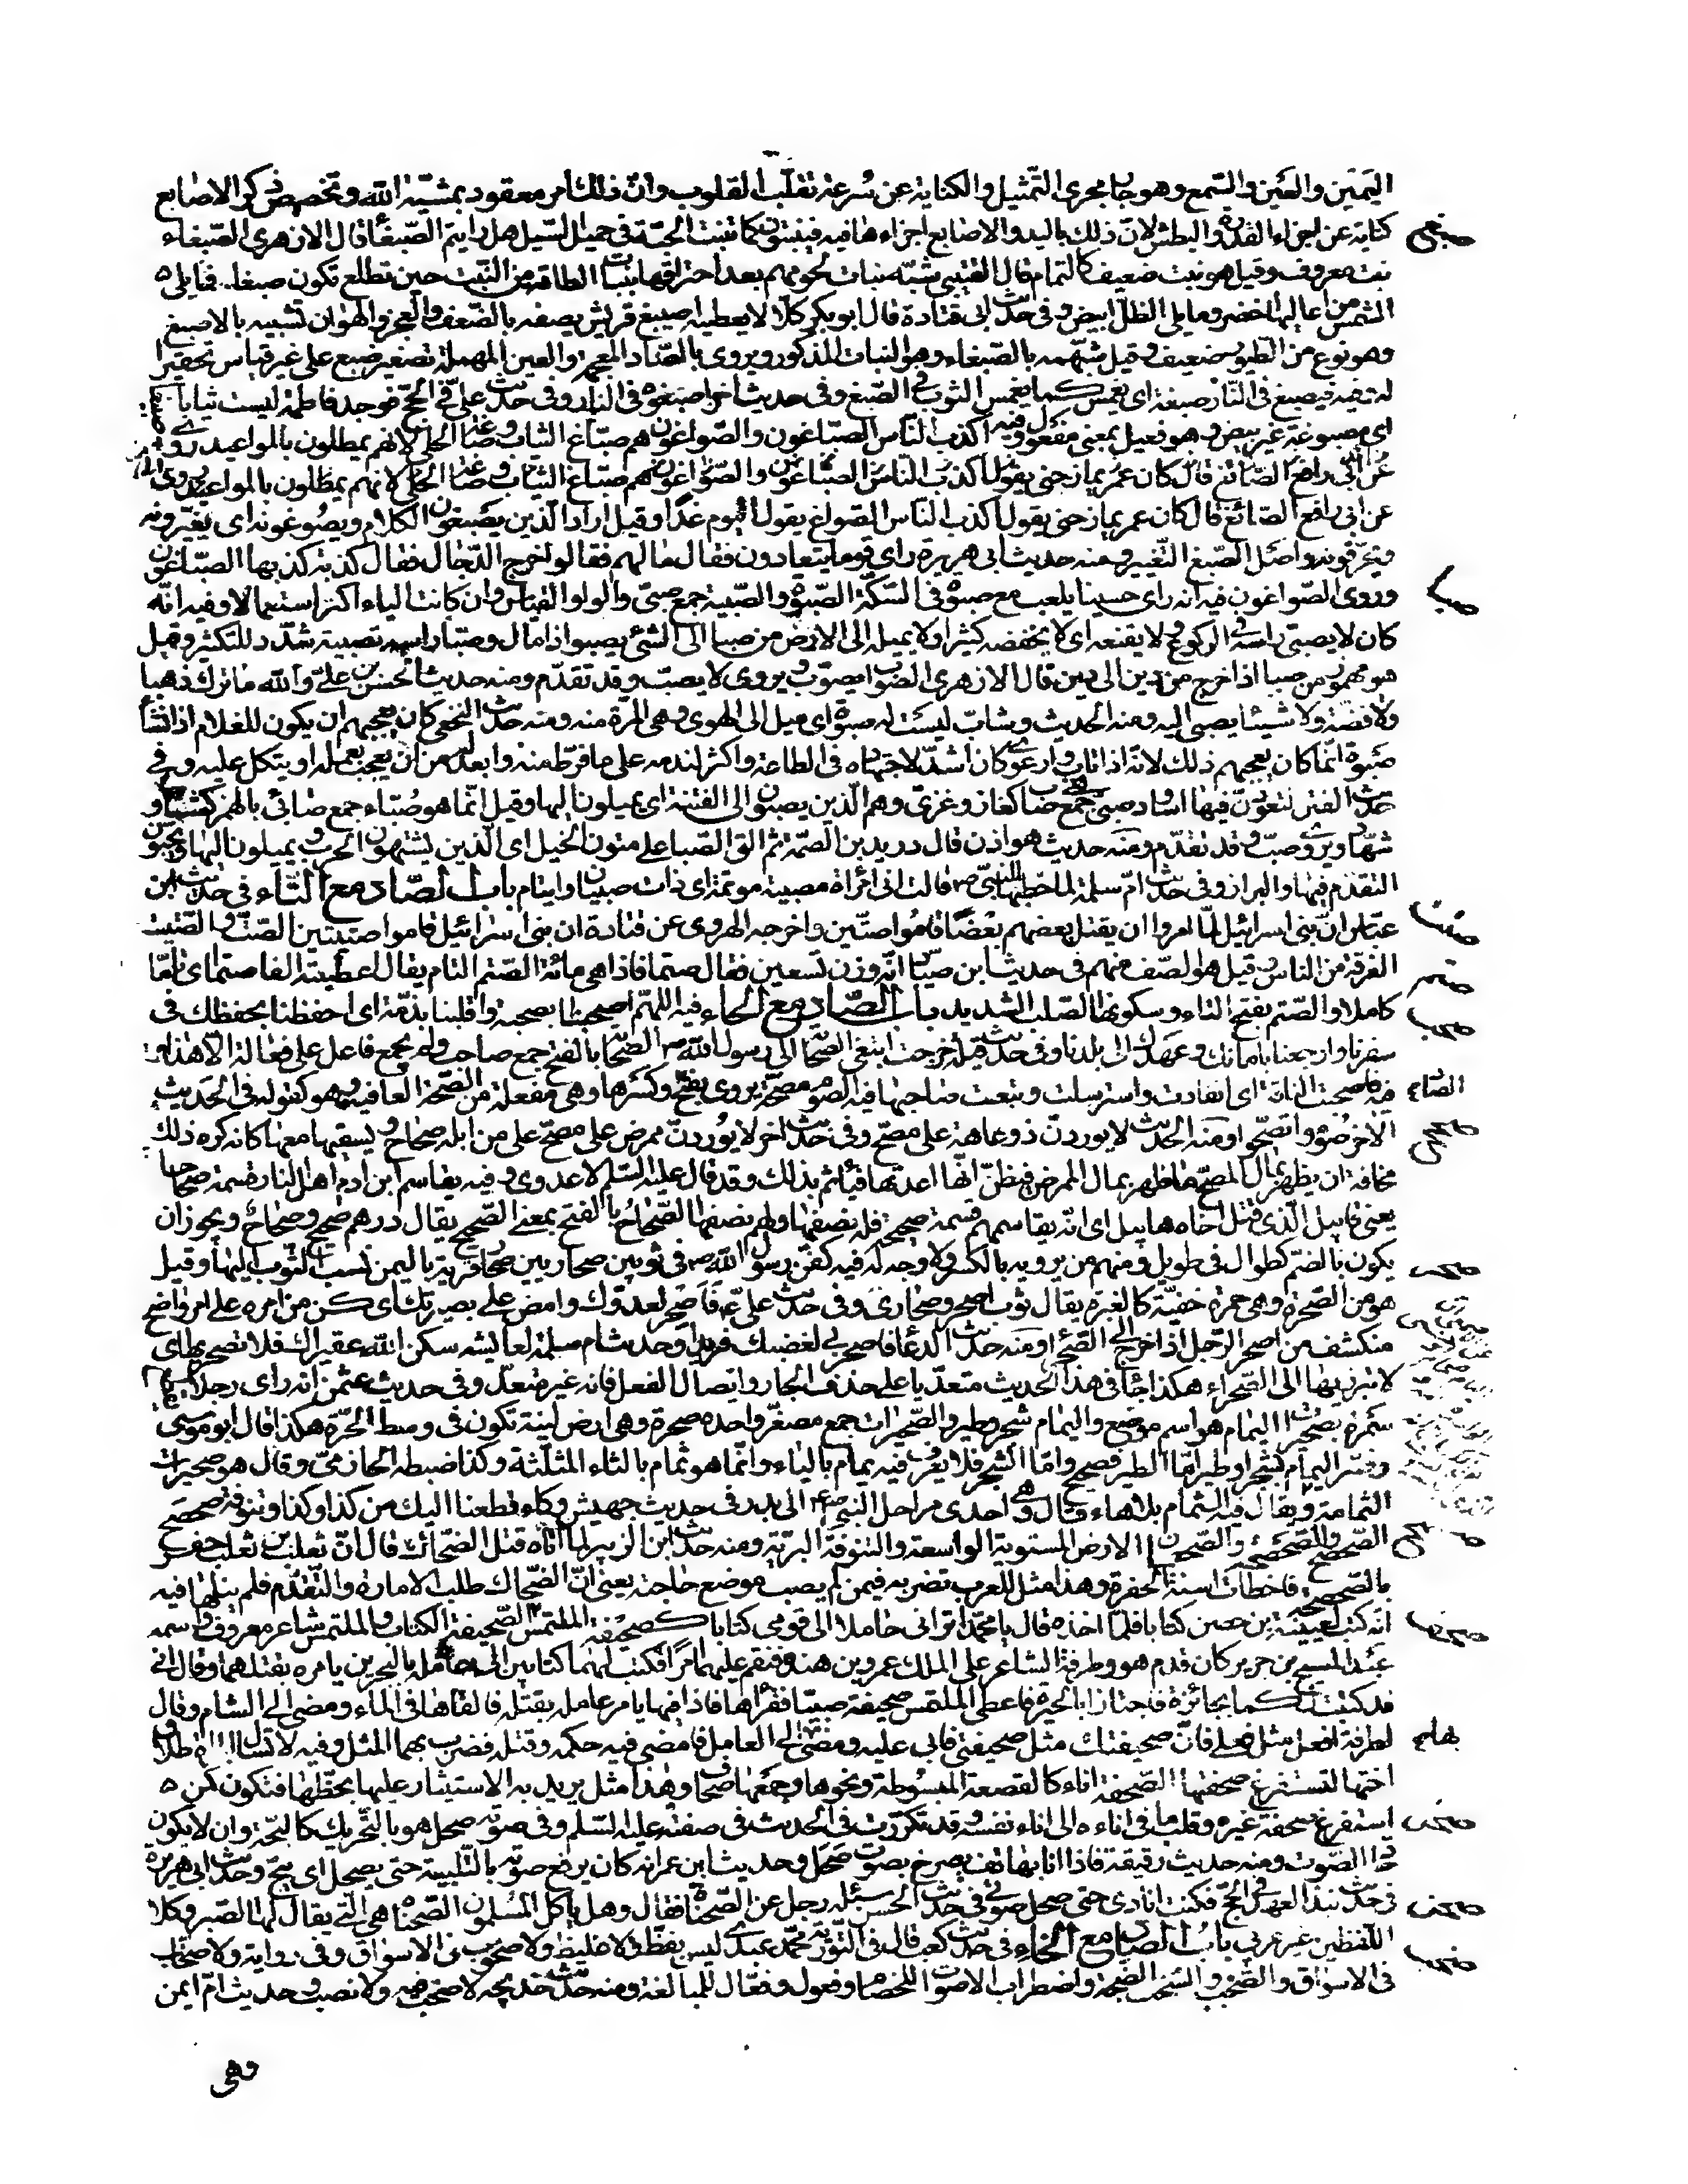 اليمين والعين والسمع وهو جار مجرى التمثيل والكناية عن سرعة تقلب القلوب وان ذلك امر معقود بمشيّة الله وتخصيص ذكر الاصابع
كناية عن اجزاء القدرة والبطش لان ذلك باليد والاصابع اجزاءها فيه فينبتون كما تنبت الحبة في حميل السيل هل رايتم الصبغاء قال الازهرى الصبغاء
نبت معروف وقيل هو نبت ضعيف كالثمام قال القتيبي شبّه نبات لحومهم بعد احتراقها بنبات الطاقة من النبت حين تطلع تكون صبغاء فما يلى
الشمس من اعاليها اخضر وما يلى الظل ابيض وفى حديث ابى قتادة قال ابو بكر كلا لا يعطيه اصيبغ قريش يصفه بالضعف والعجز والهوان تشبيه بالاصبغ
وهو نوع من الطيور ضعيف وقيل شبّهه بالصبغاء وهو النبات المذكور ويروى بالضاد المعجمة والعين المهملة تصغير ضبع على غير قياس تحقيرا
له فيه فيصبغ فى النار صبغة اى يغمس كما يغمس الثوب فى الصبغ وفى حديث اخر اصبغوه فى النار وفى حديث على فى الحج فوجد فاطمة لبست ثيابا
اى مصبوغة غير بيض وهو فعيل بمعنى مفعول وفيه اكذب الناس الصباغون والصواغون هم صبّاغ الثياب وصاغة الحلى لانهم يمطلون بالمواعيد
عن ابى رافع الصائغ قال كان عمر يمازحنى يقول اكذب الناس الصباغون والصواغون هم صبّاغ الثياب وصاغة الحلى لانهم يمطلون بالمواعيد وروى
عن ابى رافع الصائغ قال كان عمر يمازحنى يقول اكذب الناس الصواغ يقول اليوم غدا وقيل اراد الذين يصبغون الكلام ويصوغونه اى يغيّرونه
ويخرقونه واصل الصبغ التغيير ومنه حديث ابى هريرة راى قوما يتعادون فقال ما لهم فقالوا خرج الدجال فقال كذبة كذبها الصباغون
وروى الصواغون فيه انه راى حسينا يلعب مع صبوة فى السكة الصبوة والصبية جمع صبىّ والواو القياس وان كانت الياء اكثر استعمالا وفيه انه
كان لا يصبى راسه فى الركوع ولا يقنعه اى لا يخفضه كثيرا ولا يميل الى الارض من صبا الى الشئ يصبو اذا مال وصبّا راسه تصبية شدد للتكثير وقيل
هو مهموز من صبا اذا خرج من دين الى دين قال الازهرى الصواب يصوّب ويروى لا يصبّ وقد تقدّم ومنه حديث الحسن بن على والله ما ترك ذهبا
ولا فضّة ولا شيئا يصبى اليه ومنه الحديث وشابّ ليست له صبوة اى ميل الى الهوى وهى المرّة منه ومنه حديث النخعى كان يعجبهم ان يكون للغلام اذا نشأ
صبوة انما كان يعجبهم ذلك لانه اذا تاب وارعوى كان اشدّ لاجتهاده فى الطاعة واكثر لندمه على ما فرّط منه وابعد له من ان يعجب بعمله او يتكل عليه وفى
حديث الفتن لتعودن فيها اساود صبىّ هى جمع صاب كغاز وغزىّ وهم الذين يصبون الى الفتنة اى يميلون اليها وقيل انما هو صبّاء جمع صابئ بالهمز كشاهد و
شهّاد ويروى صبّ وقد تقدّم ومنه حديث هوازن قال دريد بن الصمة ثم الق الصبا على متون الخيل اى الذين يشتهون الحرب ويميلون اليها ويحبون
التقدم فيها والبراز وفى حديث ام سلمة لما خطبها النبى ص قالت انى امراة مصبية موتمة اى ذات صبيان وايتام باب الصاد مع التاء فى حديث ابن
عباس ان بنى اسرائيل لما امروا ان يقتل بعضهم بعضا قاموا صتّين واخرجه الهروى عن قتادة ان بنى اسرائيل قاموا صتيتين الصتّ والصتيت
الفرقة من الناس وقيل هو الصف منهم فى حديث ابن صياد انه وزن تسعين فقال صتما فاذا هى مائة الصتم التام يقال اعطيته الفا صتما اى تامّا
كاملا والصتم بفتح التاء وسكونها الصلب الشديد باب الصاد مع الحاء فيه اللهم اصحبنا بصحبة واقلبنا بذمّة اى احفظنا بحفظك فى
سفرنا وارجعنا بامانك وعهدك الى بلدنا وفى حديث قيلة خرجت ابتغى الصحابة الى رسول الله ص الصحابة بالفتح جمع صاحب ولم يجمع فاعل على فعالة الا هذا
فيه فاصحبت الناقة اى انقادت واسترسلت وتبعت صاحبها فيه الصوم مصحّة يروى بفتح وكسرها وهى مفعلة من الصحة العافية وهو كقوله فى الحديث
الاخر صوموا تصحوا ومنه الحديث لا يوردن ذو عاهة على مصحّ وفى حديث اخر لا يوردن ممرض على مصحّ على من ابله صحاح ولا يسقيها معها كانه كره ذلك
مخافة ان يظهر بمال المصحّ ما ظهر بمال الممرض فيظن انها اعدتها فياثم بذلك وقد قال عليه السلم لا عدوى وفيه يقاسم ابن ادم اهل النار قسمة صحاحا
يعنى قابيل الذى قتل اخاه هابيل اى انه يقاسمهم قسمة صحيحة فله نصفها ولهم نصفها الصحاح بالفتح بمعنى الصحيح يقال درهم صحيح وصحاح ويجوز ان
يكون بالضم كطوال فى طويل ومنهم من يرويه بالكسر ولا وجه له فيه كفن رسول الله ص فى ثوبين صحاريين صحار قرية باليمن نسب الثوب اليها وقيل
هو من الصحرة وهى حمرة خفيّة كالغبرة يقال ثوب اصحر وصحارى وفى حديث على ع فاصحر لعدوك وامض على بصيرتك اى كن من امره على امر واضح
منكشف من اصحر الرجل اذا خرج الى الصحراء ومنه حديث الدعاء فاصحر بى لغضبك فريدا وحديث ام سلمة لعايشة سكن الله عقيراك فلا تصحريها اى
لا تبرزيها الى الصحراء هكذا جاء فى هذا الحديث متعدّيا على حذف الجار وايصال الفعل فانه غير متعدّ وفى حديث عثمن انه راى رجلا
سمرة بصحيرات اليمام هو اسم موضع واليمام شجر وطير والصحيرات جمع مصغّر واحده صحرة وهى ارض لينة تكون فى وسط الحرّة هكذا قال ابو موسى
وفسّر اليمام بشجر او طير اما الطير فصحيح واما الشجر فلا يعرف فيه يمام بالياء وانما هو ثمام بالثاء المثلثة وكذا ضبطه الحازمى وقال هو صحيرات
الثمامة ويقال فيه الثمام بلا هاء قال وهى احدى مراحل النبى ص الى بدر فى حديث جهيش وكاء قطعنا اليك من كذا وكذا وتنوفة صحصح
الصحصح والصحصحة والصحصحان الارض المستوية الواسعة والتنوفة البرّية ومنه حديث ابن الزبير لما اتاه قتل الضحاك قال ان ثعلب بن ثعلب حفر
بالصحصحة فاخطات استه الحفرة وهذا مثل للعرب تضربه فيمن لم يصب موضع حاجته يعنى ان الضحاك طلب الامارة والتقدّم فلم ينلها فيه
انه كتب لعيينة بن حصن كتابا فلما اخذه قال يا محمد اترانى حاملا الى قومى كتابا كصحيفة الملتمس الصحيفة الكتاب والملتمس شاعر معروف واسمه
عبد المسيح بن جرير كان قدم هو وطرفة الشاعر على الملك عمرو بن هند فنقم عليهما امرا فكتب لهما كتابين الى عامله بالبحرين يامره بقتلهما وقال انى
قد كتبت لكما بجائزة فاجتازا بالحيرة فاعطى الملتمس صحيفته صبيّا فقراها فاذا فيها يامر عامله بقتله فالقاها فى الماء ومضى الى الشام وقال
لطرفة افعل مثل فعلى فان صحيفتك مثل صحيفتى فابى عليه ومضى الى العامل فامضى فيه حكمه وقتله فضرب بهما المثل وفيه لا تسال المراة طلاق
اختها لتستفرغ صحفتها الصحفة اناء كالقصعة المبسوطة ونحوها وجمعها صحاف وهذا مثل يريد به الاستيثار عليها بحظّها فتكون كمن
استفرغ صحفة غيره وقلب ما فى اناءه الى اناء نفسه وقد تكررت فى الحديث فى صفته عليه السلم وفى صوته صحل هو بالتحريك كالبحّة وان لا يكون
حادّ الصوت ومنه حديث رقيقة فاذا انا بهاتف يصرخ بصوت صحل وحديث ابن عمر انه كان يرفع صوته بالتلبية حتى يصحل اى يبحّ وحديث ابى هريرة
فى حديث نبذ العهد فى الحج فكنت انادى حتى صحل صوتى فى حديث الحسن سئله رجل عن الصحناة فقال وهل ياكل المسلمون الصحناة هى التى يقال لها الصير وكلا
اللفظين غير عربى باب الصاد مع الخاء فى حديث كعب قال فى التورية محمد عبدى ليس بفظّ ولا غليظ ولا صخوب فى الاسواق وفى رواية ولا صخاب
فى الاسواق والصخب والسخب الضجة واضطراب الاصوات للخصام وفعول وفعّال للمبالغة ومنه حديث خديجة لا صخب فيه ولا نصب وحديث ام ايمن
وهى